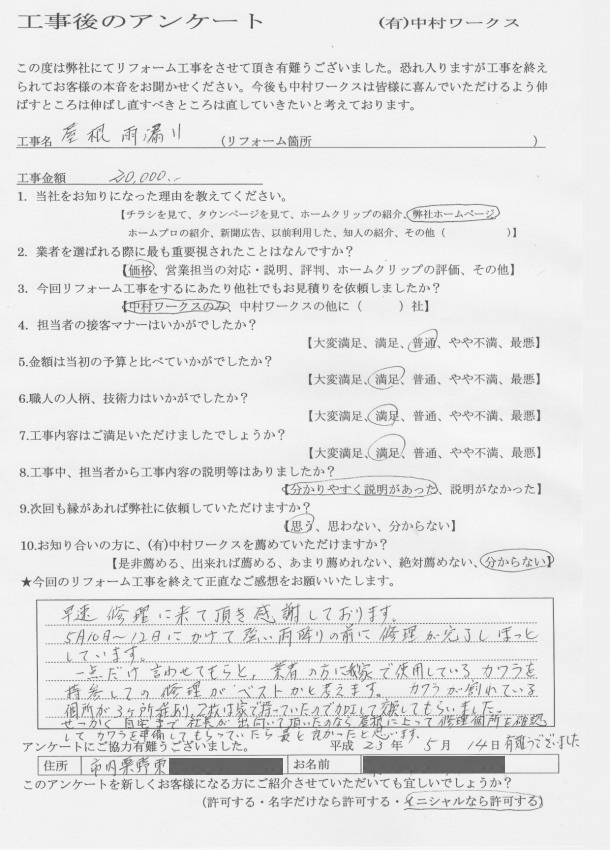 工事後のアンケート　(有)中村ワークス
この度は弊社にてリフォーム工事をさせて頂き有難うございました。恐れ入りますが工事を終え
られてお客様の本音をお聞かせください。今後も中村ワークスは皆様に喜んでいただけるよう伸
ばすところは伸ばし直すべきところは直していきたいと考えております。
工事名 屋根雨漏り (リフォーム箇所　)
工事金額 20,000.-
1. 当社をお知りになった理由を教えてください。
【チラシを見て、タウンページを見て、ホームクリップの紹介、弊社ホームページ
ホームプロの紹介、新聞広告、以前利用した、知人の紹介、その他（　）】
2. 業者を選ばれる際に最も重要視されたことはなんですか？
【価格、営業担当の対応・説明、評判、ホームクリップの評価、その他】
3. 今回リフォーム工事をするにあたり他社でもお見積りを依頼しましたか？
【中村ワークスのみ、中村ワークスの他に（　）社】
4. 担当者の接客マナーはいかがでしたか？
【大変満足、満足、普通、やや不満、最悪】
5.金額は当初の予算と比べていかがでしたか？
【大変満足、満足、普通、やや不満、最悪】
6.職人の人柄、技術力はいかがでしたか？
【大変満足、満足、普通、やや不満、最悪】
7.工事内容はご満足いただけましたでしょうか？
【大変満足、満足、普通、やや不満、最悪】
8.工事中、担当者から工事内容の説明等はありましたか？
【分かりやすく説明があった、説明がなかった】
9.次回も縁があれば弊社に依頼していただけますか？
【思う、思わない、分からない】
10.お知り合いの方に、(有)中村ワークスを薦めていただけますか？
【是非薦める、出来れば薦める、あまり薦めれない、絶対薦めない、分からない】
★今回のリフォーム工事を終えて正直なご感想をお願いいたします。
早速修理に来て頂き感謝しております。
5月10日〜12日にかけて強い雨降りの前に修理が完了しほっと
しています。
一点だけ言わせてもらうと、業者の方に我家で使用しているカワラを
持参しての修理がベストかと考えます。カワラが割れている
個所が3ヶ所程あり、2枚は家で持っていたので加工して交換してもらいました。
せっかく自宅まで社長が出向いて頂いたのなら屋根に上って修理個所を確認
してカワラを準備してもらっていたら最と良かったと思います。
アンケートにご協力有難うございました。 平成 23 年 5 月 14日 有難うございました
住所 市内栗野東 お名前
このアンケートを新しくお客様になる方にご紹介させていただいても宜しいでしょうか？
(許可する・名字だけなら許可する・イニシャルなら許可する)